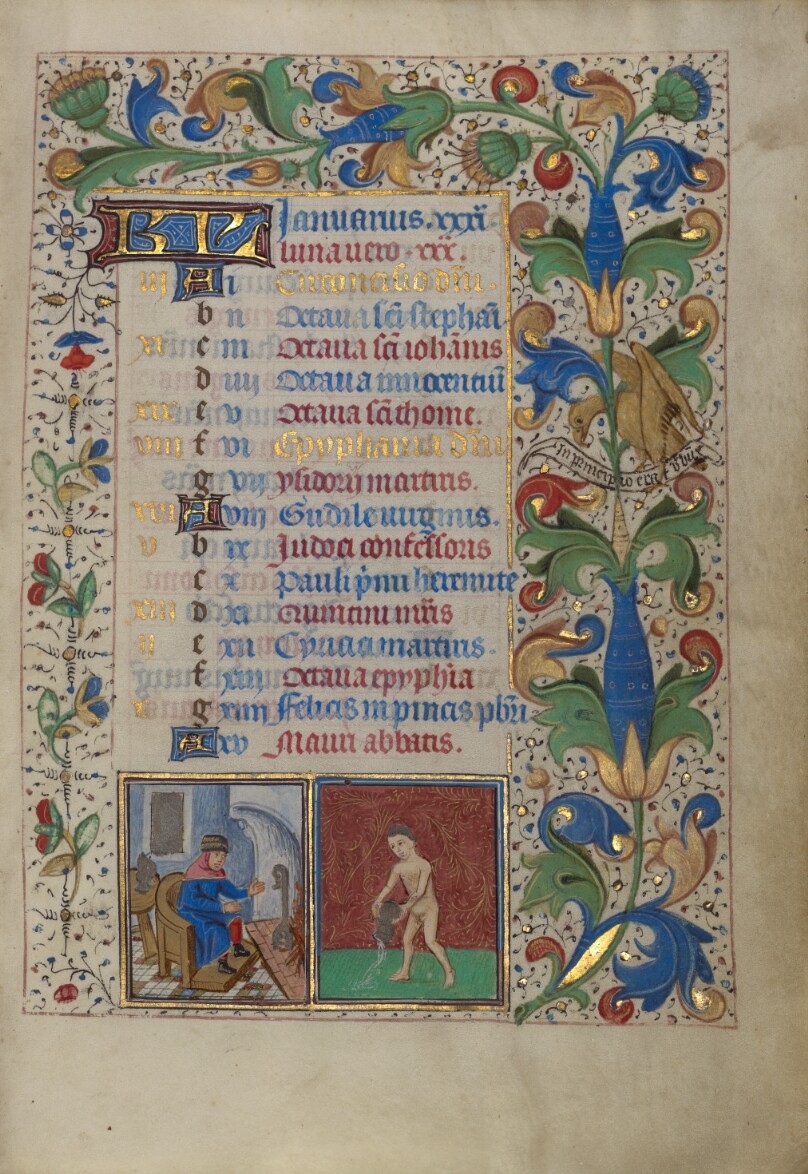 KL Januarius .xxxi
luna vero .xxx.
iii A i Circoncisio dñi.
b ii Octaua sci stephani
xi c iii Octaua sci iohānis
d iiii Octaua innocentiū
xix e v Octaua sci thome
viii f vi Epyphania dñi
g vii ysidori martiris.
xvi A viii Gudile uirginis.
v b ix Judoci confessoris
c x Pauli pimi heremite
xiii d xi mris
ii e xii Cyriaci martiris.
f xiii Octaua epyphia
g xiiii Felicis in pincis pbri
A xv Mauri abbatis.
In principio erat